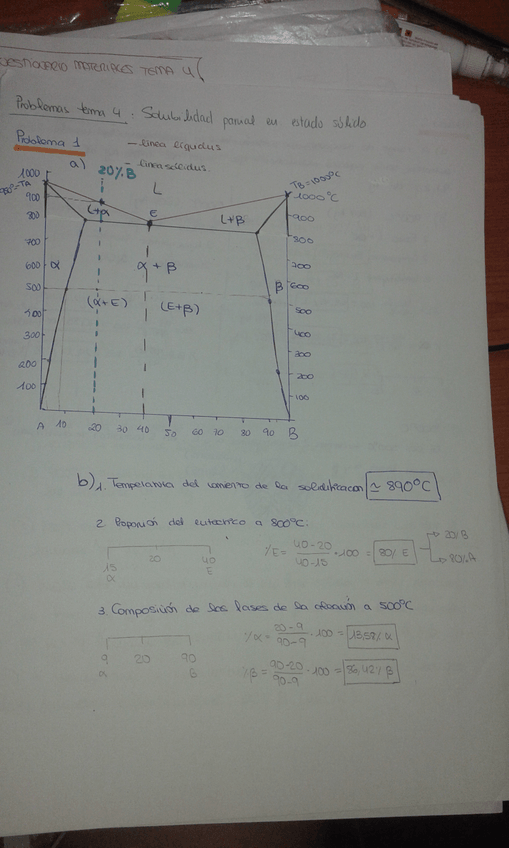 MATERIALES TEMA 4
Problemas tema 4 : Solubilidad parcial en estado sólido
Problema 1
- linea liquidus
a) 20%B - linea solidus.
1000 L TB=1000ºC
TA 1000ºC
900 L+α E L+β 900
800 800
700 700
600 α α + β β 600
500 (α+E) (E+β) 500
400 400
300 300
200 200
100 100
A 10 20 30 40 50 60 70 80 90 B
b) 1. Temperatura del comienzo de la solidificación ≃ 890ºC
2. Proporción del eutectico a 800ºC:
15 20 40
α E
%E = 40-20/40-15 · 100 = 80% E
20%B
80%A
3. Composición de las fases de la aleación a 500ºC
9 20 90
α B
%α = 20-9/90-9 · 100 = 13,58% α
%β = 90-20/90-9 · 100 = 86,42% β